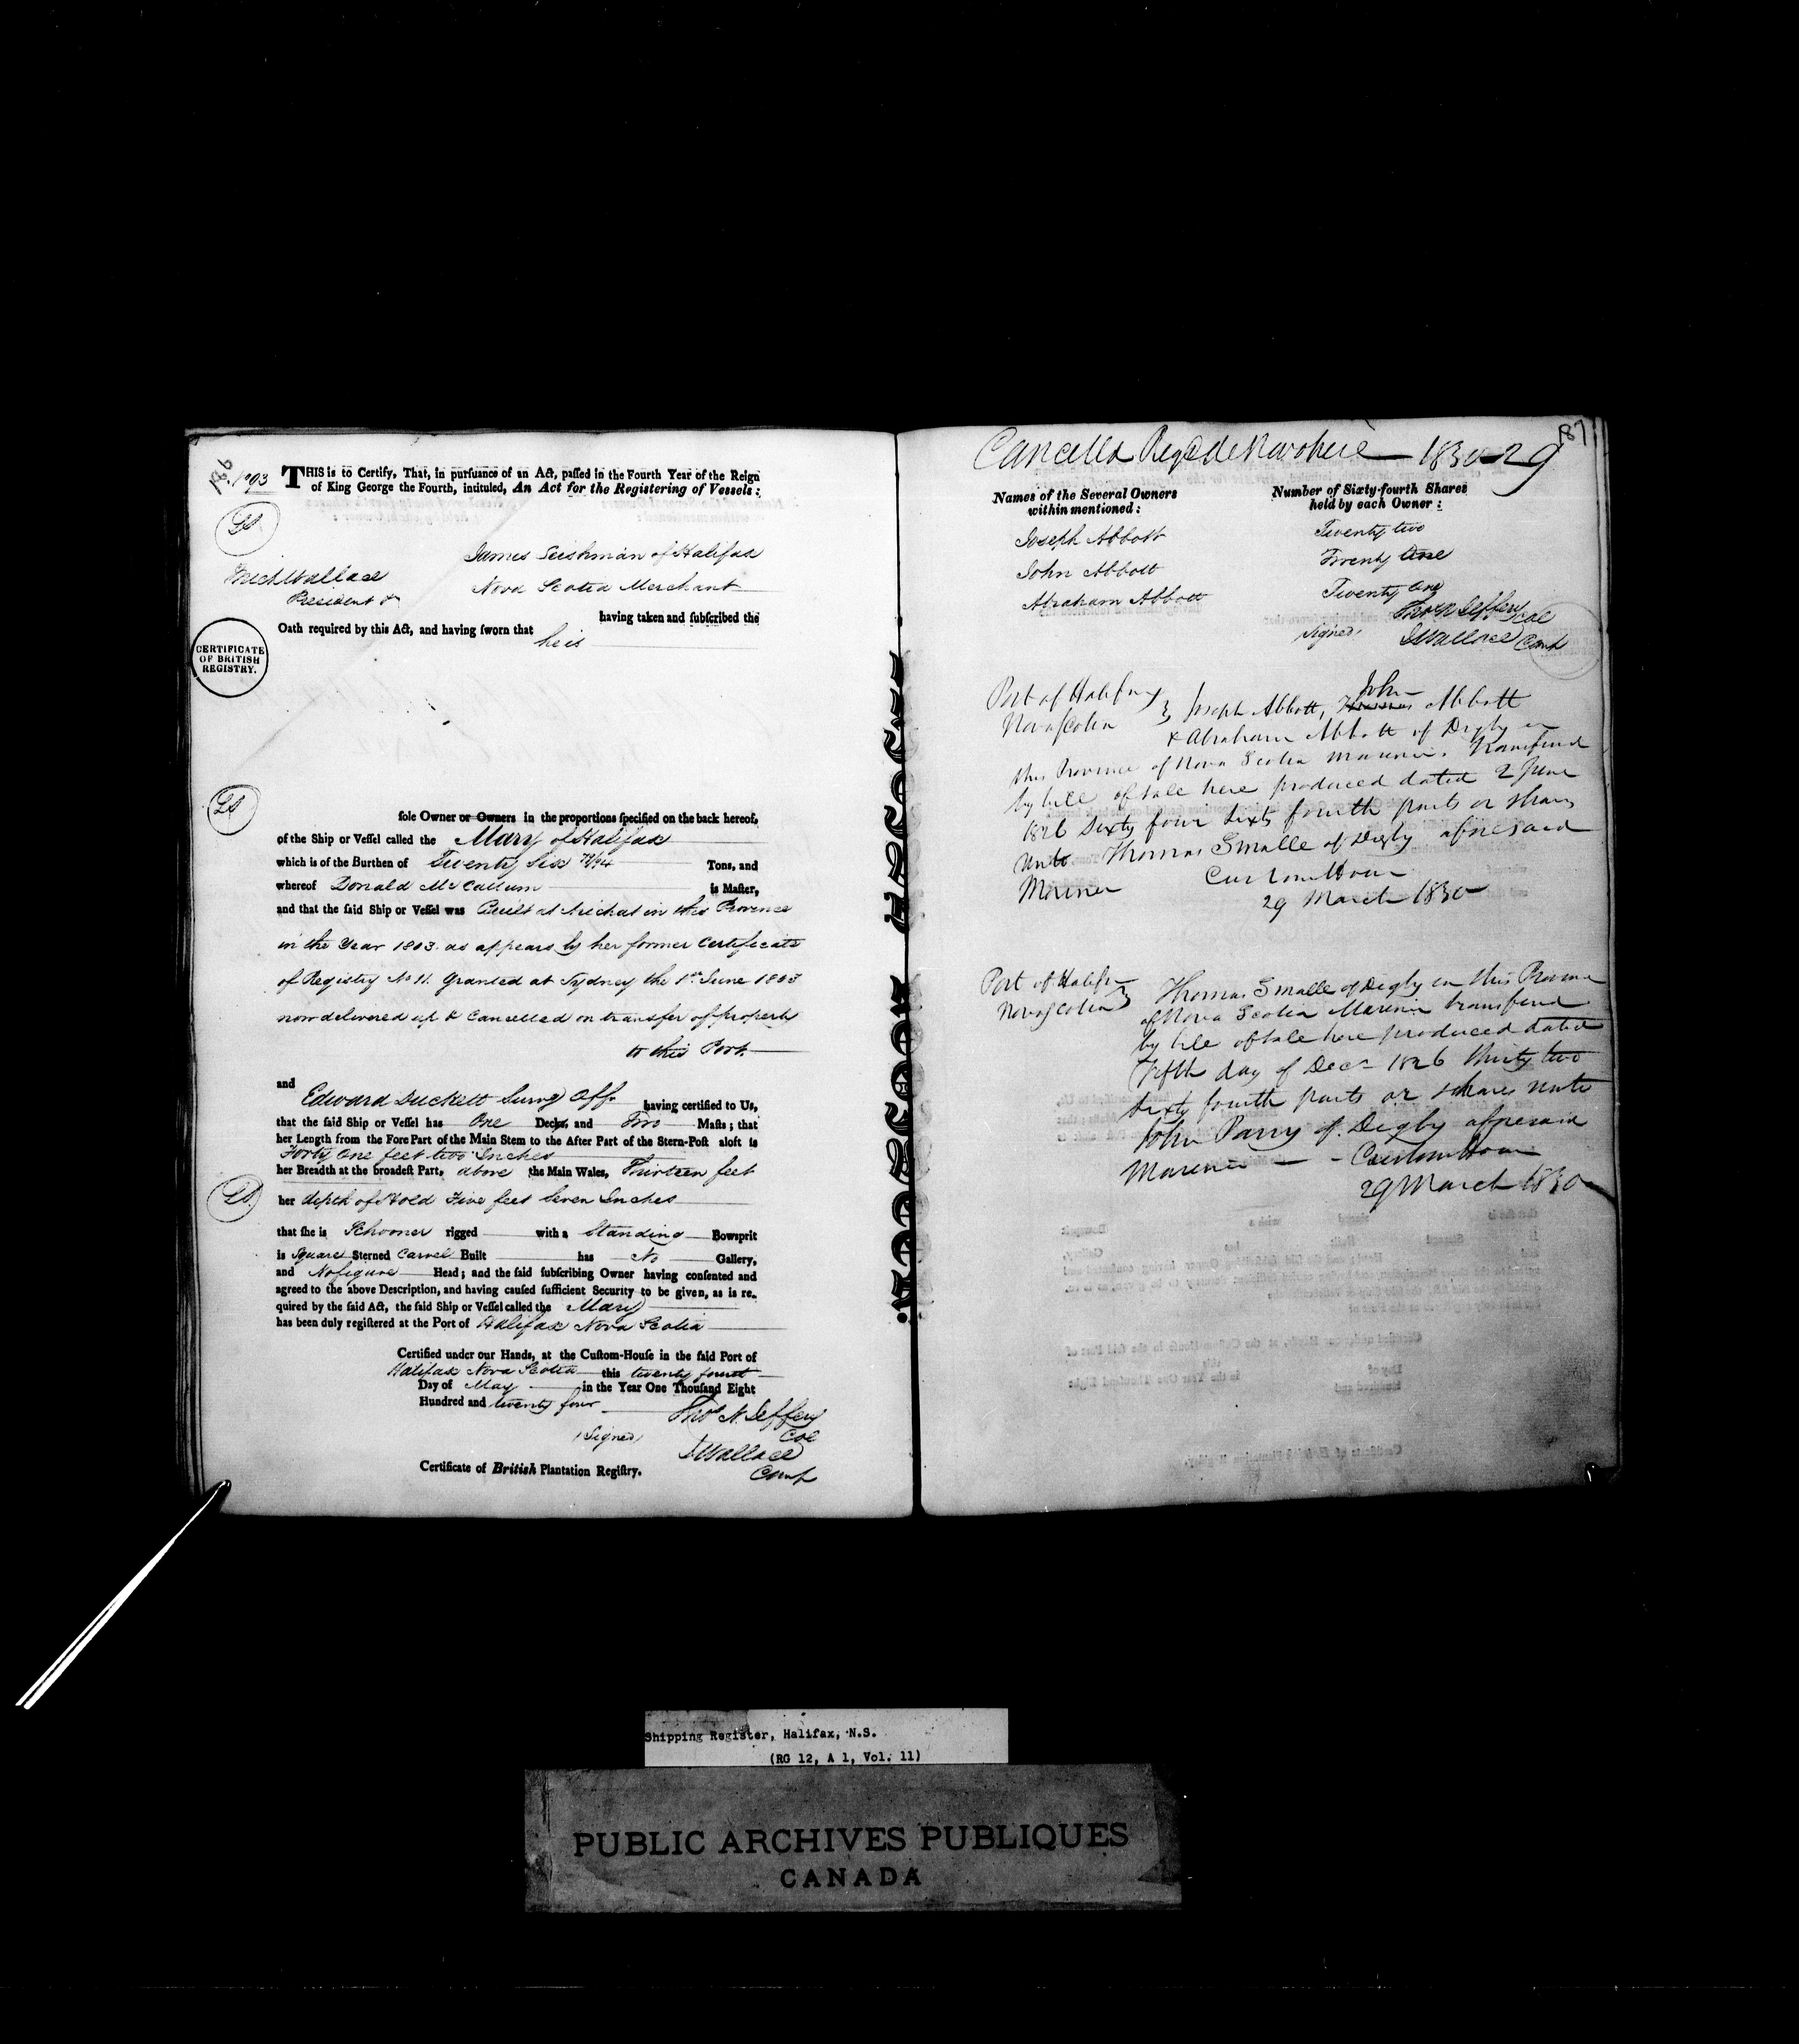 186
No. 1093
THIS is to Certify, That, in pursuance of an Act, passed in the Fourth Year of the Reign
of King George the Fourth, intituled, An Act for the Registering of Vessels:
LS
James Leishman of Halifax
Wallace
Nova Scotia Merchant
President &
having taken and subscribed the
Oath required by this Act, and having sworn that
he is
CERTIFICATE
OF BRITISH
REGISTRY.
LS
sole Owner or Owners in the proportions specified on the back hereof,
of the Ship or Vessel called the Mary of Halifax
which is of the Burthen of Twenty Six 72/94 Tons, and
whereof Donald McCallum is Master,
and that the said Ship or Vessel was Built at Arichat in this Province
in the Year 1803. as appears by her former Certificate
of Registry No 11. Granted at Sydney the 1st June 1803
now delivered up & Cancelled on transfer of property
to this Port.
and
Edward Duckett Survg Offr having certified to Us,
that the said Ship or Vessel has One Decks, and Two Masts; that
her Length from the Fore Part of the Main Stem to the After Part of the Stern-Post aloft is
Forty One feet two Inches
her Breadth at the broadest Part, above the Main Wales, Thirteen feet
LS.
her depth of Hold Five feet Seven Inches
that she is Schooner rigged with a Standing Bowsprit
is Square Sterned Carvel Built has No Gallery,
and No figure Head; and the said subscribing Owner having consented and
agreed to the above Description, and having caused sufficient Security to be given, as is re-
quired by the said Act, the said Ship or Vessel called the Mary
has been duly registered at the Port of Halifax Nova Scotia
Certified under our Hands, at the Custom-House in the said Port of
Halifax Nova Scotia this twenty fourth
Day of May in the Year One Thousand Eight
Hundred and twenty four
Thos N. Jeffery
(Signed) Col
Wallace
Certificate of British Plantation Registry. Compt
187
Cancelled Regd de Novo here 1830 29
Names of the Several Owners
within mentioned:
Number of Sixty-fourth Shares
held by each Owner:
Joseph Abbott Twenty two
John Abbott Twenty One
Abraham Abbott Twenty One
Thos N Jeffery Col
Signed. Wallace Compt
Port of Halifax
Nova Scotia
John
Joseph Abbott, Thomas Abbott
& Abraham Abbott of Digby in
this Province of Nova Scotia Mariners. Transferred
by bill of sale here produced dated 2 June
1826 Sixty four Sixty fourth parts or shares
Unto Thomas Smalle of Digby aforesaid
Mariner Custom House
29 March 1830
Port of Halifax
Nova Scotia
Thomas Smalle of Digby in this Province
of Nova Scotia Mariner transferred
by bill of sale here produced dated
Fifth day of Decr 1826 thirty two
sixty fourth parts or shares unto
John Parry of Digby aforesaid
Mariner Custom House
29 March 1830
Shipping Register, Halifax, N.S.
(RG 12, A 1, Vol. 11)
PUBLIC ARCHIVES PUBLIQUES
CANADA